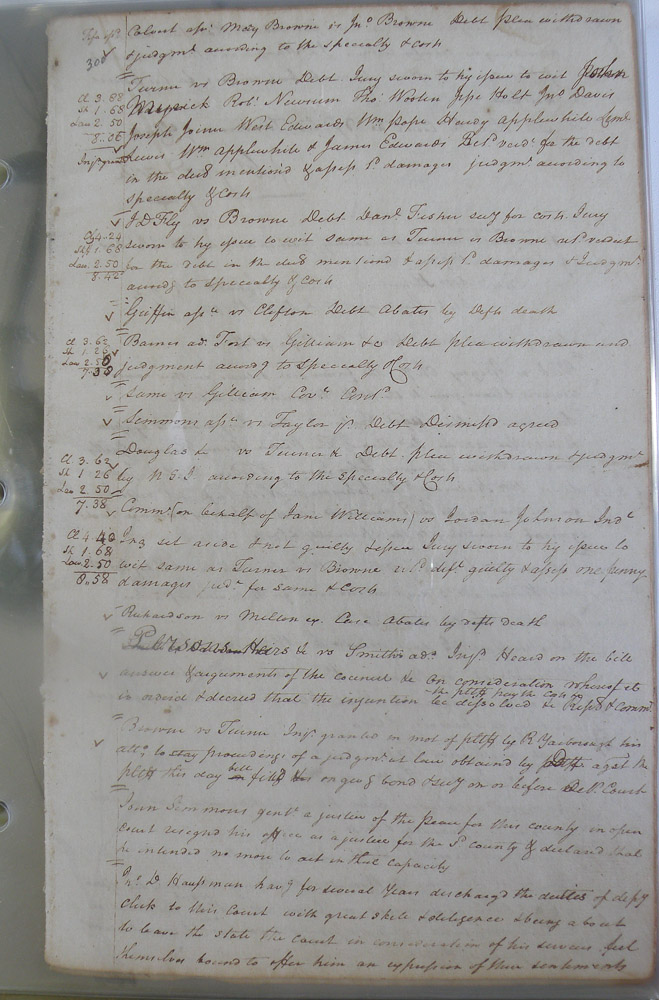 Calvert apr. Mary Browne vs Jno Browne Debt plea withdrawn
& judgmt acording to the specialty & costs
300
Turner vs Browne Debt Jury sworn to try issue to wit
Cl 3.88
St 1.68
Law 2.50
8.06
Robt Newsum Tho Wooten Jesse Holt Jno Davis
Joseph Joiner West Edwards Wm Pope Henry Applewhite
Lewis Wm Applewhite & James Edwards Retd verdt for the debt
in the decl mentiond & assess 1d damages judgmt according to
specialty & Costs
J D Fly vs Browne Debt Danl Fisher secy for costs. Jury
Cl 4.24
Stf 1.68
Law 2.50
8.42
sworn to try issue to wit same as Turner vs Browne retd verdict
for the debt in the decl mentiond & assess 1d damages & Judgmt
acordg to specialty & Costs
Griffin apr vs Clifton Debt Abates by Defts death
Cl 3.62
St 1.26
Law 2.50
7.38
Barnes ad. Fort vs Gilliam &c Debt plea withdrawn and
judgment accordg to Specialty & Costs
Same vs Gilliam Covt Contd
Simmons apr vs Taylor jr Debt Dismissd agreed
Douglas &c vs Turner &c Debt. plea withdrawn & judgmt
Cl 3.62
St 1.26
Law 2.50
7.38
by N S I according to the specialty & Costs
Comm (on behalf of Jane Williams) vs Jordan Johnson Indt
Cl 4.40
St 1.68
Law 2.50
8.58
Inq set aside & not guilty & issue Jury sworn to try issue to
wit same as Turner vs Browne retd deft guilty & assess one penny
damages judt for same & Costs
Richardson vs Milton ex. Case Abates by defts death
Persons Heirs &c vs Smith's ad. Injn Heard on the bill
answer & arguments of the council &c On consideration whereof it
the pltff pay the costs
is orderd & decreed that the injunction be dissolved &
Browne vs Turner Injn granted on mot of pltff by R Yarborough his
atto to stay proceedings of a judgmt at law obtained by agst the
pltff this day bill filed on givg bond & secy on or before Court
Simmons gentn a justice of the peace for this county in open
court resignd his office as a justice for the sd county & declard that
he intended no more to act in that capacity
Jno D Haussman havg for several Years dischargd the duties of depy
clerk to this Court with great skill & deligence & being about
to leave the state the court in consideration of his services feel
themselves bound to offer him an expression of their sentiments